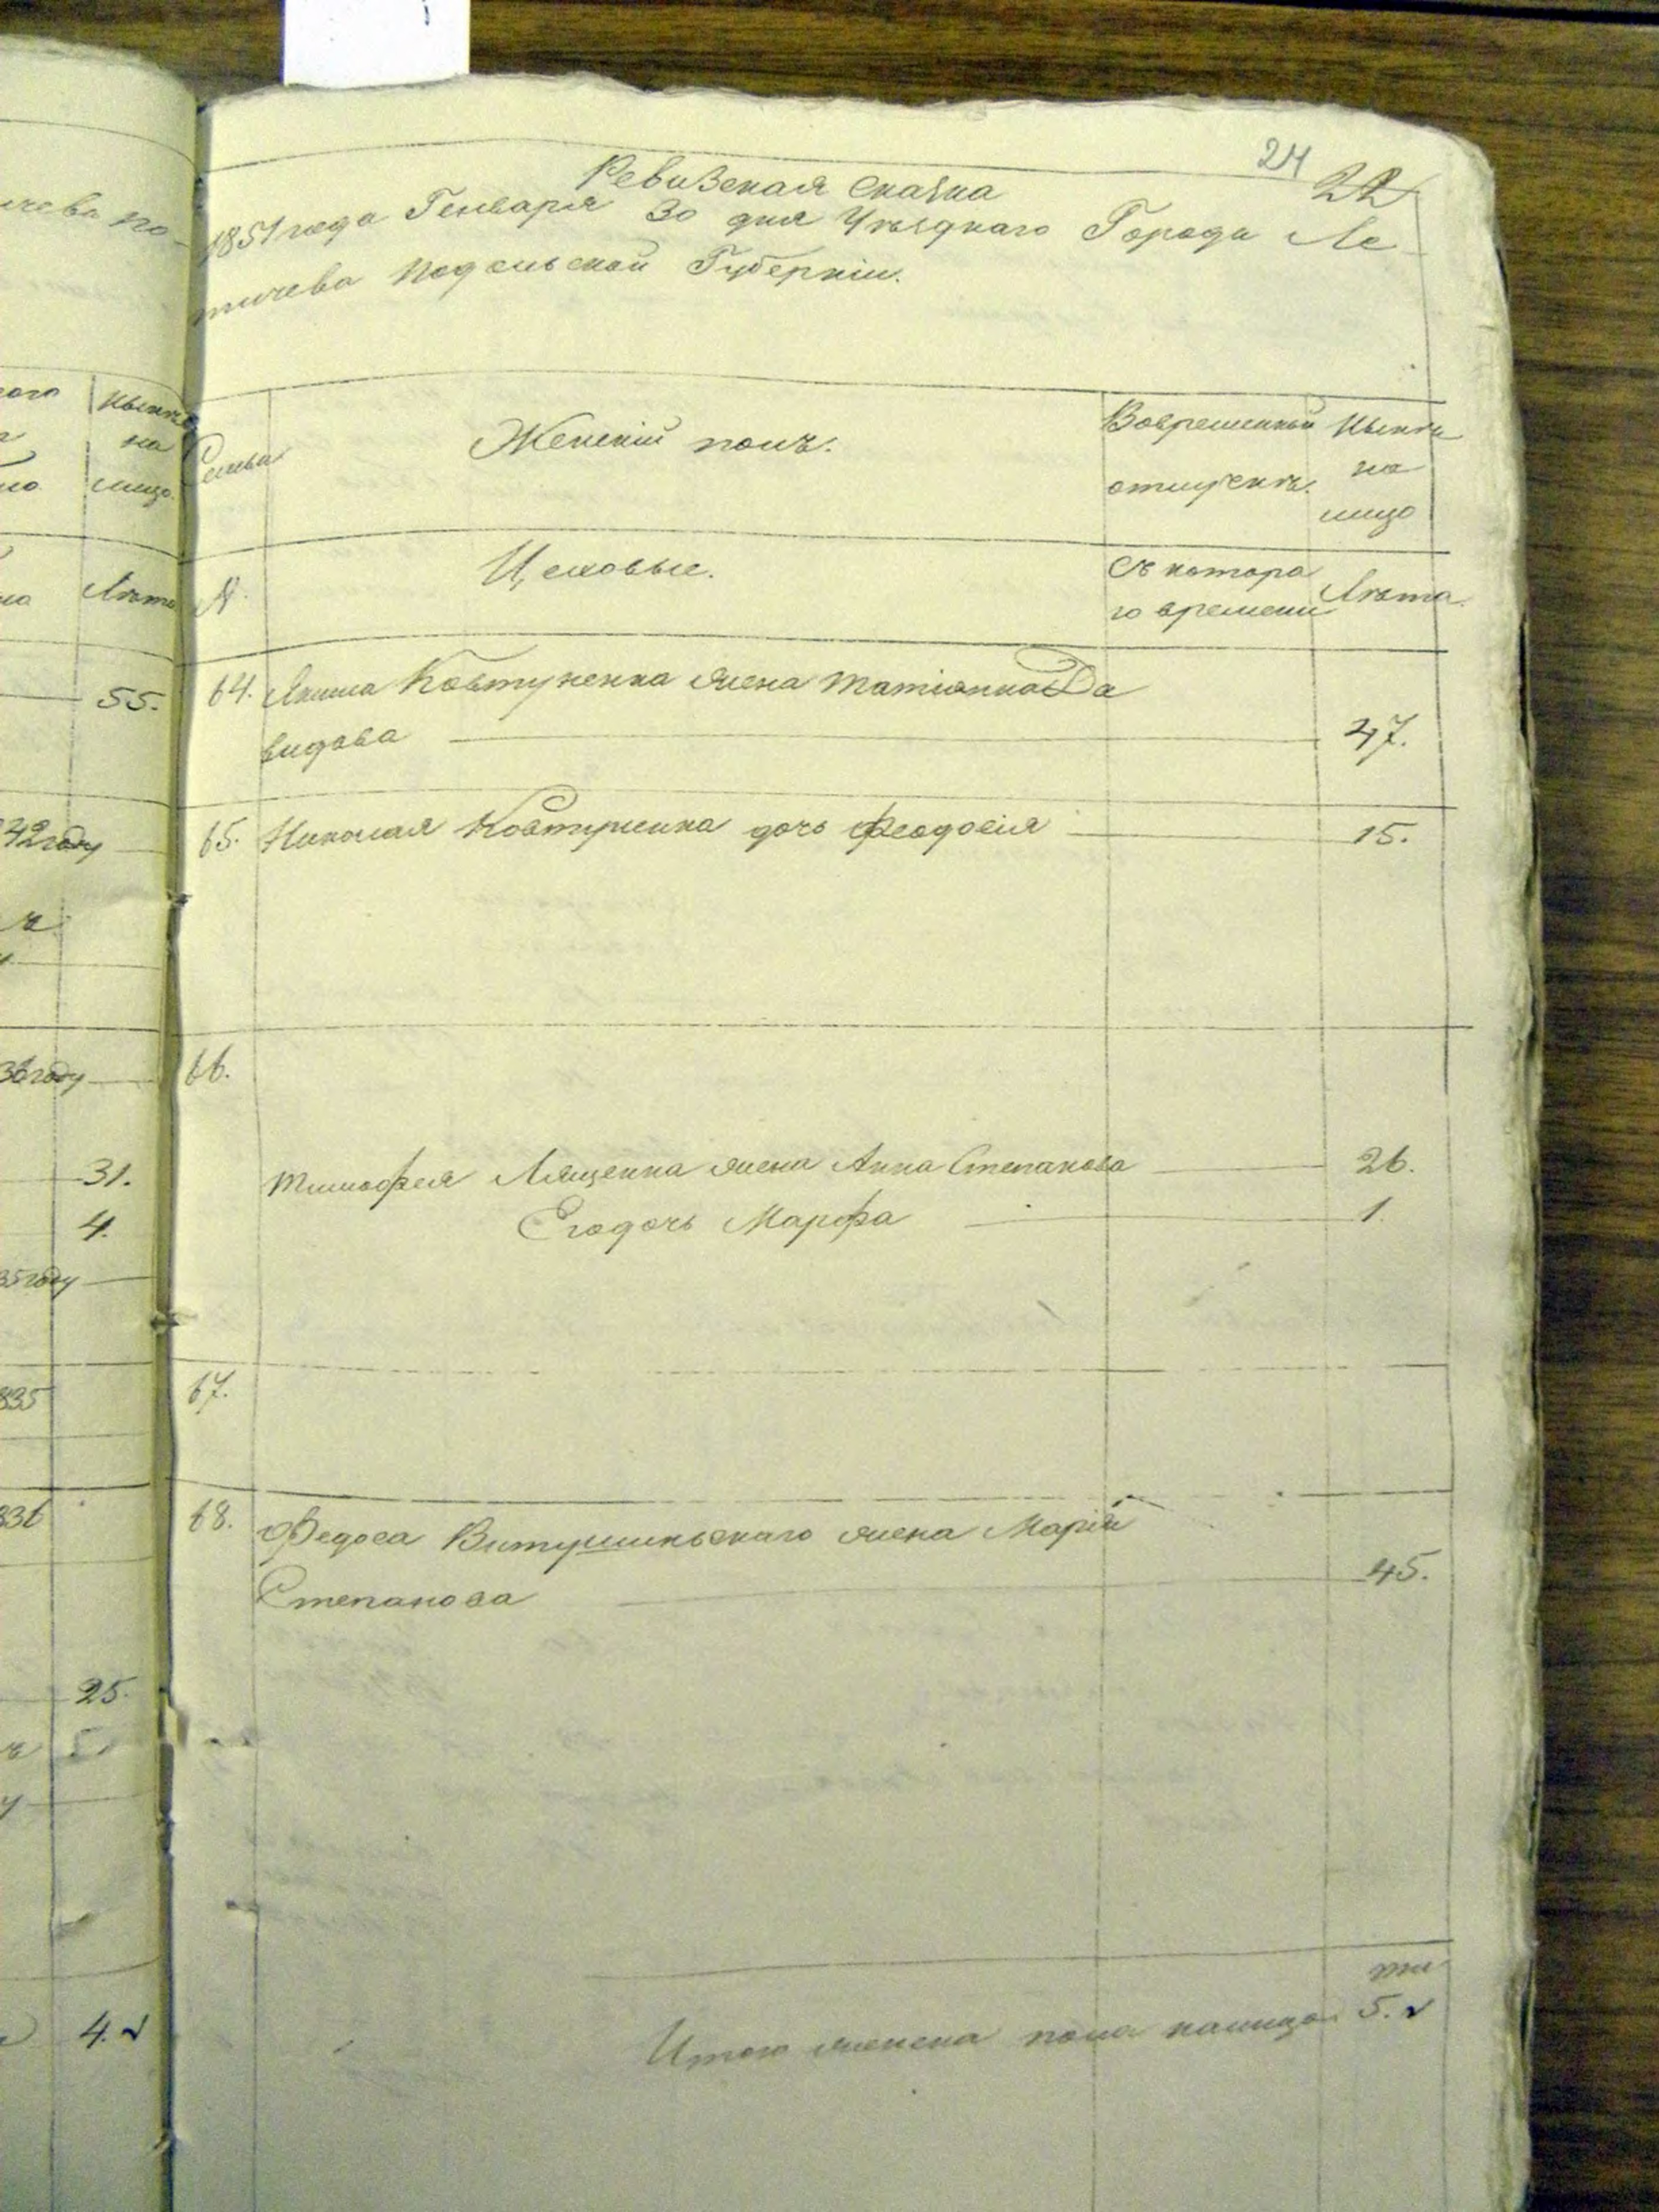 24 22
Ревизская сказка
1851 года Генваря 30 дня Уѣзднаго Города Ле
тичева Подольской Губерніи.
Женскій полъ.
Вовременной
отлучкѣ.
Нынѣ
на
лицо
Семьи
Цеховые.
№
Съ котора
го времени
Лѣта.
64. Якима Ковтуненка жена Татіанна Да
видова 47.
65. Николая Ковтуненка дочь Феодосія 15.
66.
Тимофея Лященка жена Анна Степанова 26.
Его дочь Марфа 1.
67.
68. Федоса Витушинскаго жена Марія
Степанова 45.
Итого женска пола налицо 5.
ногo
Нынѣ
на
лицо.
Лѣта
55.
42 году
36 году
31.
4.
35 году
835
836
25.
4.